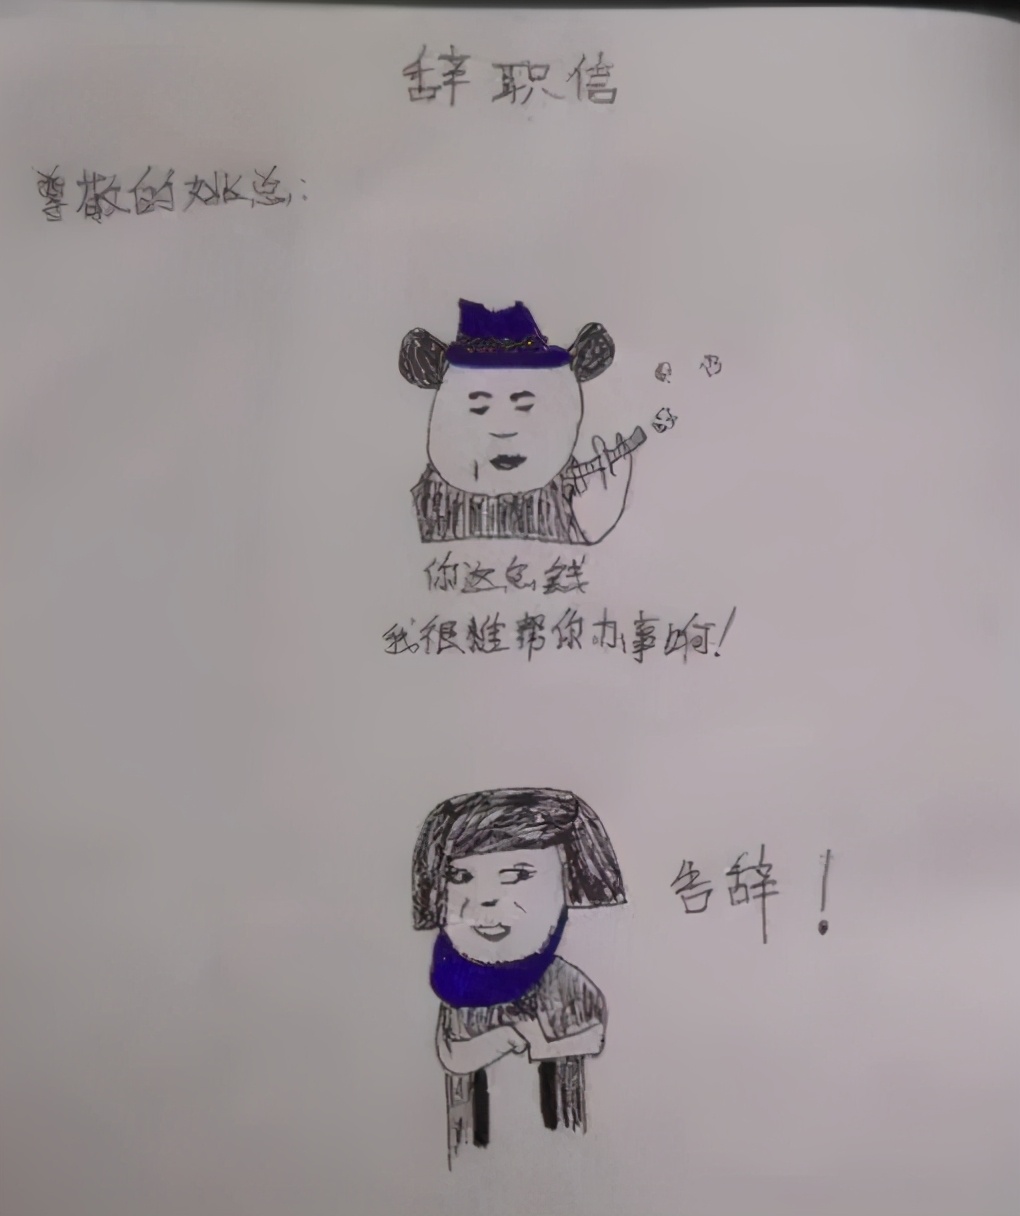 辞职信
尊敬的姚总:
你这点钱
我很难帮你办事啊!
告辞!